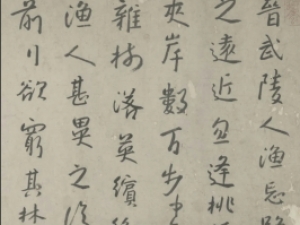 晉武陵人漁忘路
之遠近忽逢桃
夾岸數百步中
雜樹落英繽
漁人甚異之復
前行欲窮其林